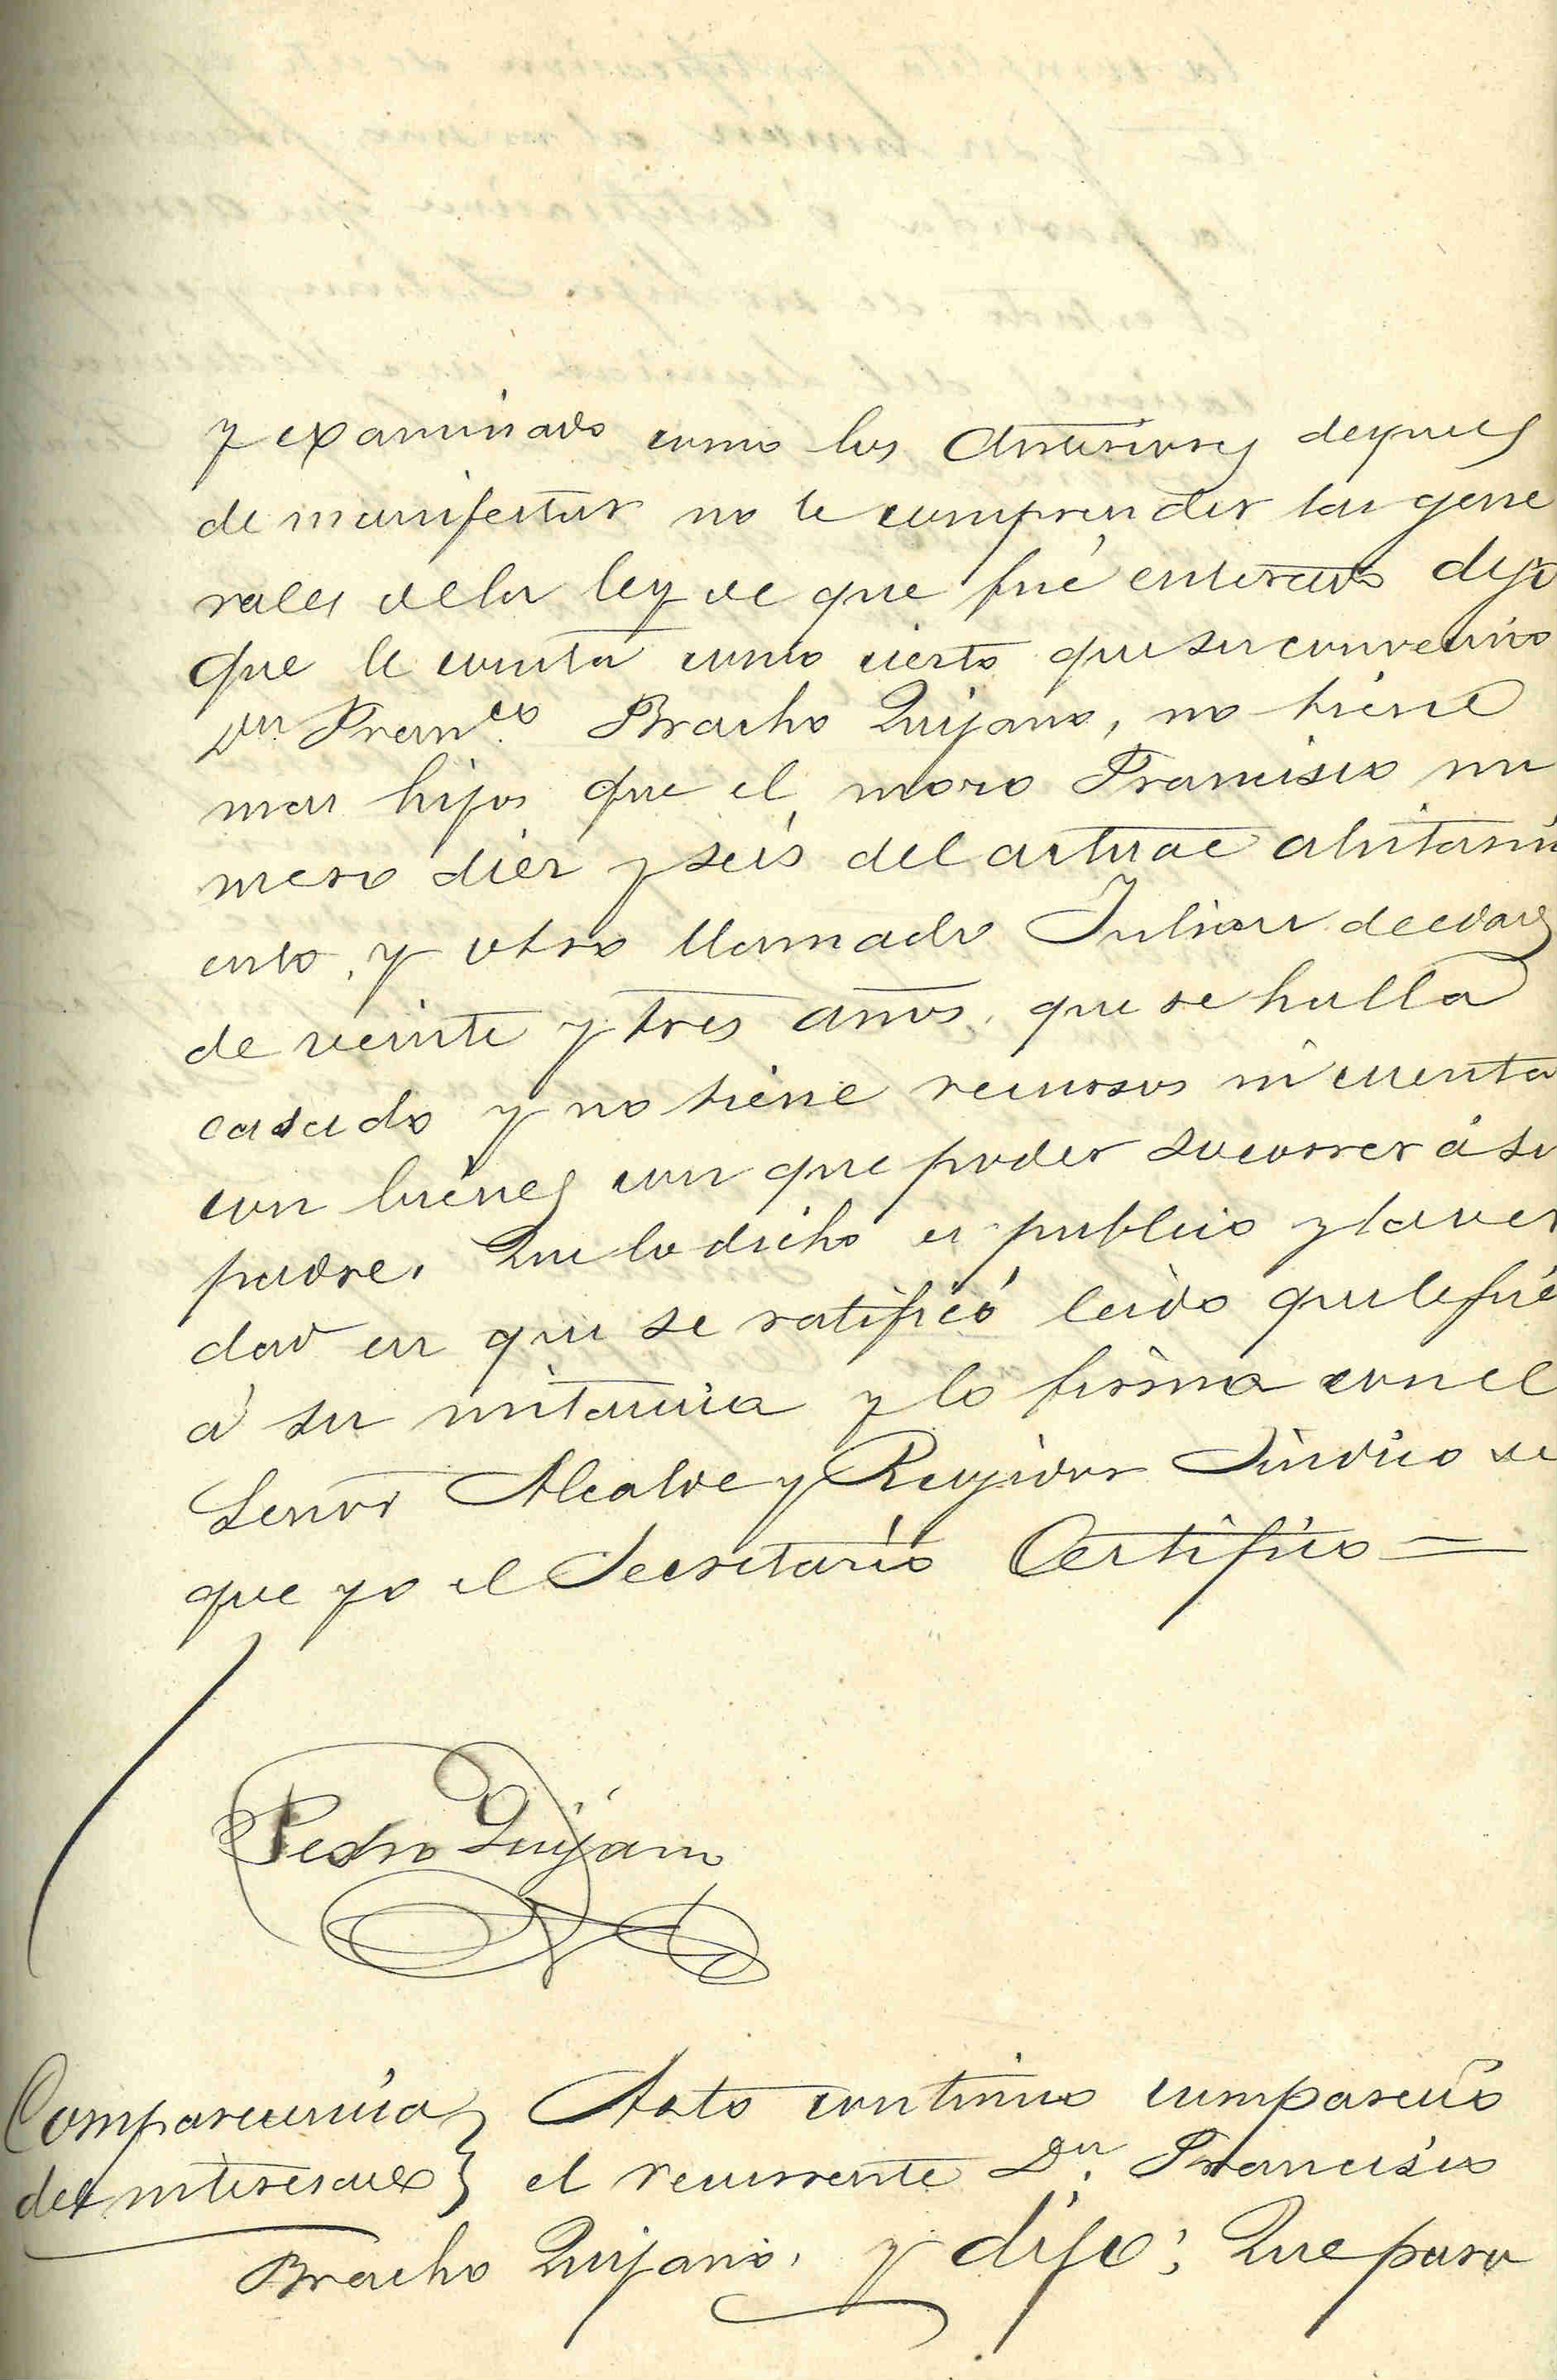 y examinado como los Anteriores despues
de manifestar no le comprender las gene
rales de la ley de que fué enterado dijo
que le consta como cierto que su convecino
Dn Franco Bracho Quijano, no tiene
mas hijos que el mozo Francisco nu
mero diez y seis del actual alistami
ento, y otro llamado Julian de edad
de veinte y tres años, que se halla
casado y no tiene recursos ni cuenta
con biénes con que poder socorrer á su
padre. Que lo dicho es publico y la ver
dad en que se ratificó leido que le fué
á su instancia y lo firma con el
Señor Alcalde y Regidor Sindico de
que yo el Secretario Certifico =
Pedro Quijano
Comparecencia
del interesado
Acto continuo comparecio
el recurrente Dn. Francisco
Bracho Quijano, y dijo; Que para